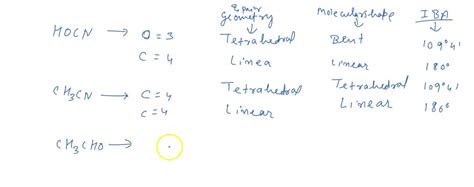 E pair geometry Molecular shape IBA
HOCN → O = 3 Tetrahedral Bent 109°41
C = 4 Linea Linear 180°
CH3CN → C = 4 Tetrahedral Tetrahedral 109°41
C = 4 Linear Linear 180°
CH3CHO →